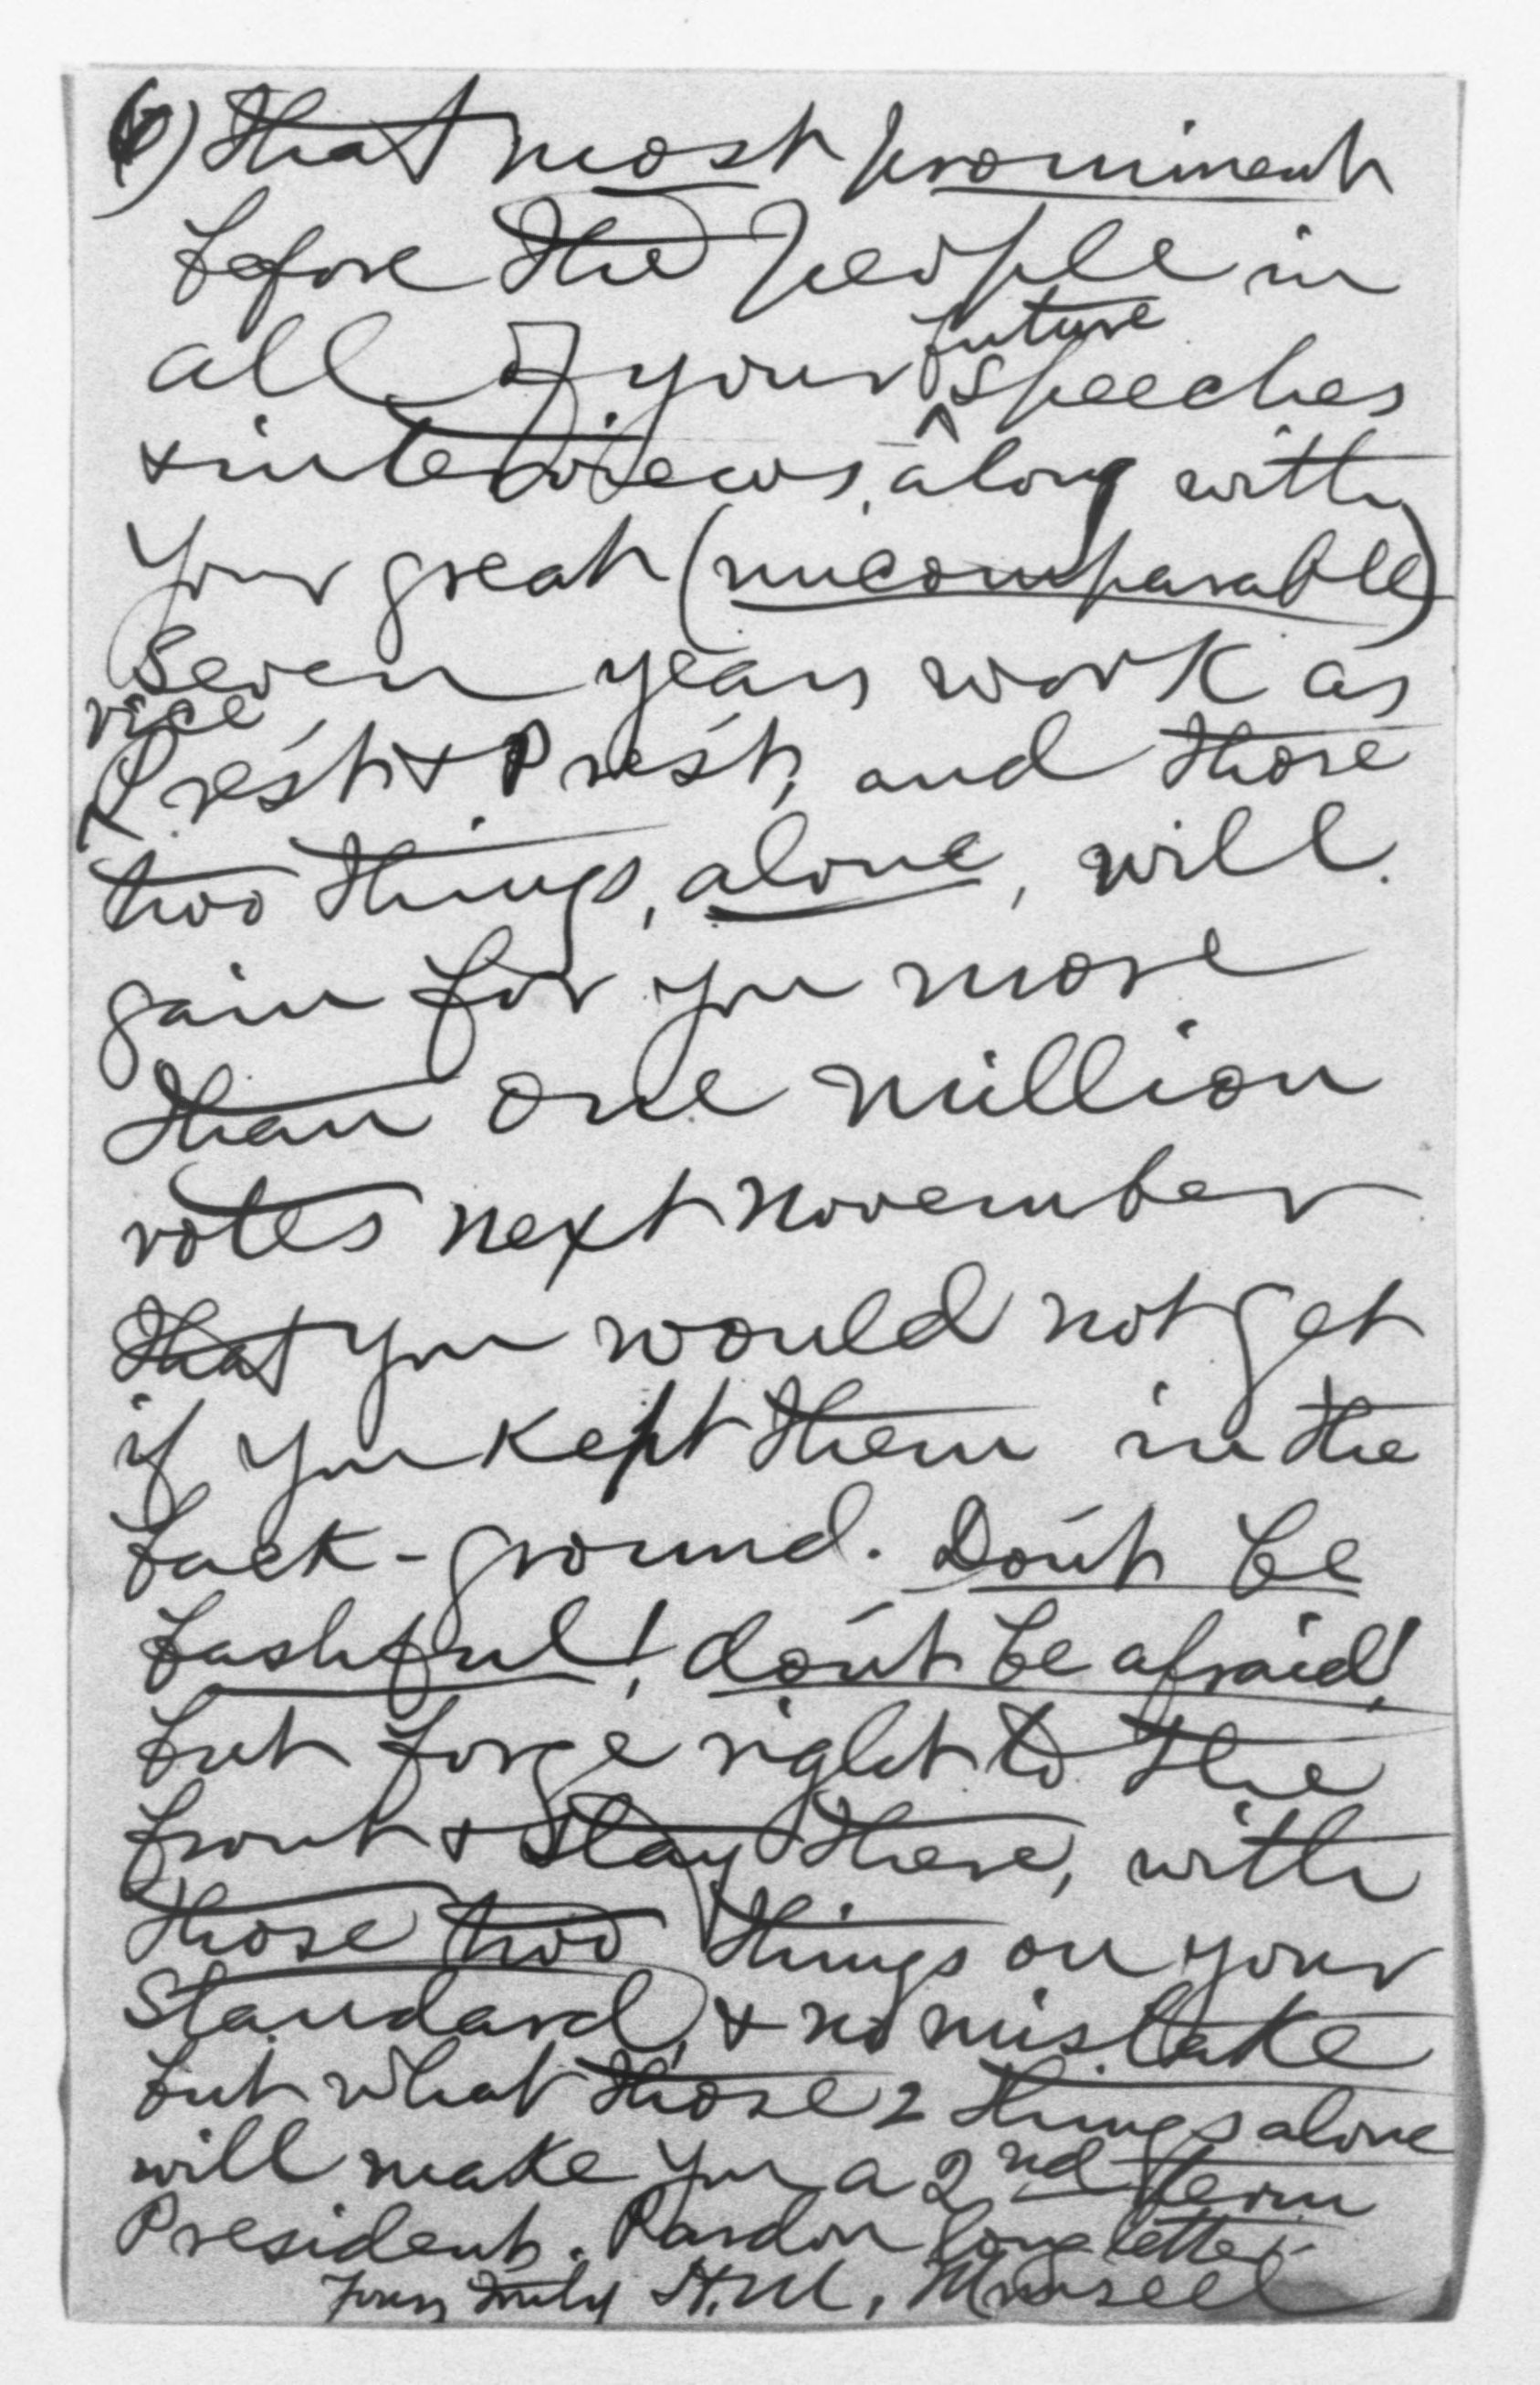 6) that most prominent
before the people in
all of your future speeches
& interviews, along with
your great (uncomparable)
seven years work as
vice
Pres't & Pres't, and those
two things, alone, will
gain for you more
than one million
votes next november
that you would not get
if you kept them in the
back-ground. Don't be
bashful! don't be afraid!
but forge right to the
front & stay there, with
those two things on your
standard, & no mistake
but what those 2 things alone
will make you a 2nd term
President. Pardon long letter.
Yours truly H.M.